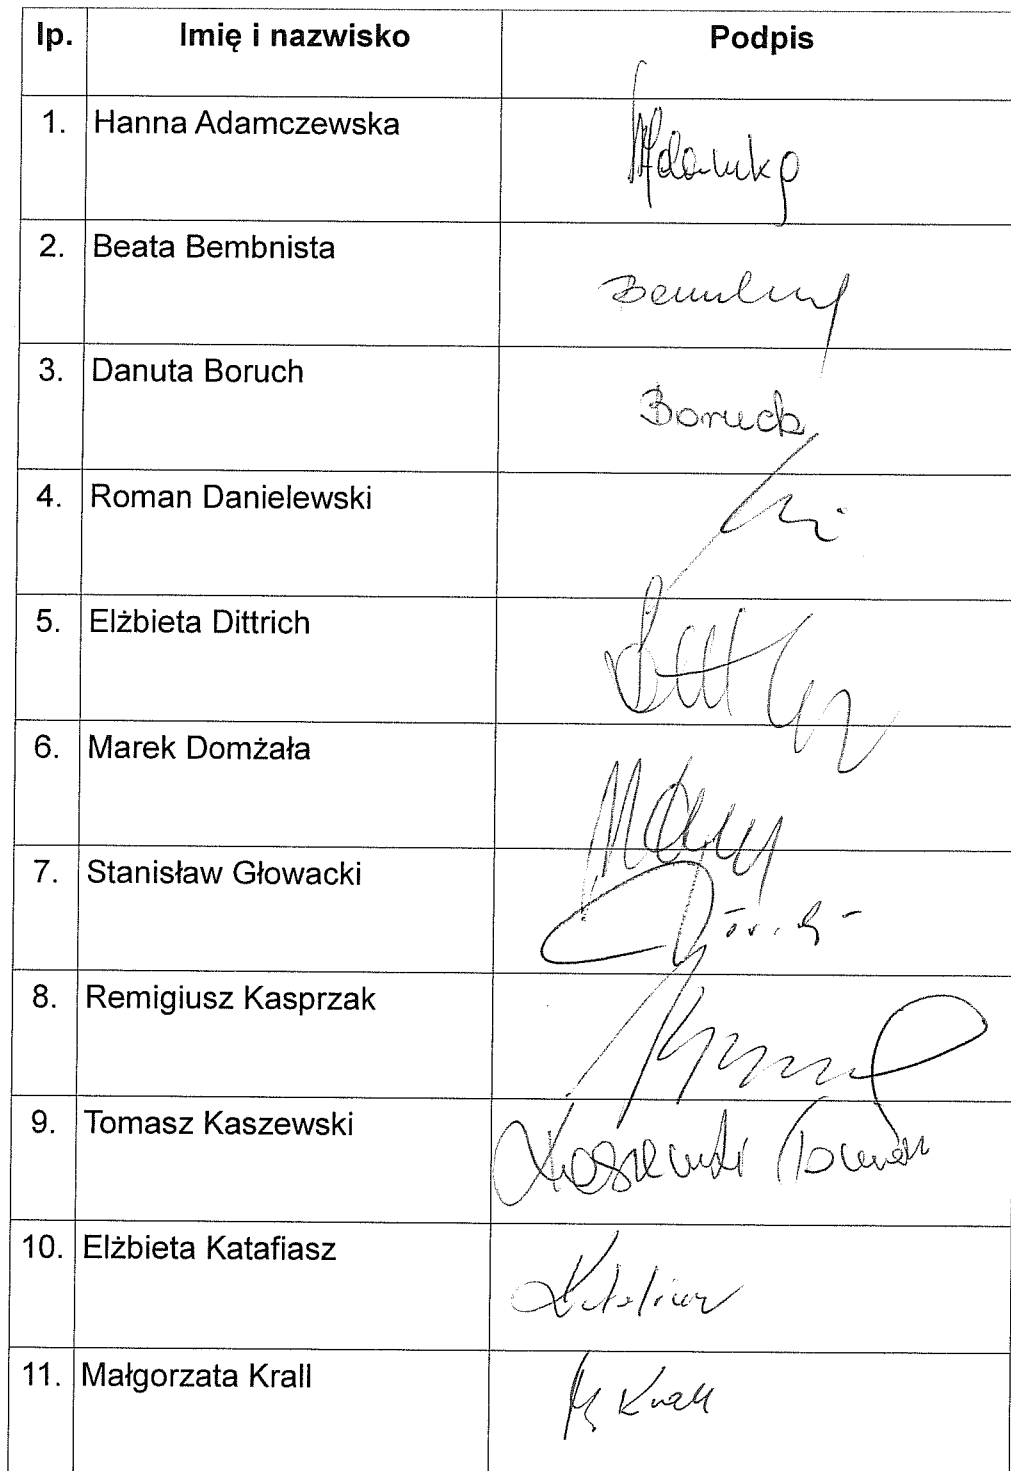 lp. Imię i nazwisko Podpis
1. Hanna Adamczewska
2. Beata Bembnista
3. Danuta Boruch Boruch
4. Roman Danielewski
5. Elżbieta Dittrich
6. Marek Domżała
7. Stanisław Głowacki
8. Remigiusz Kasprzak
9. Tomasz Kaszewski Kaszewski Tomasz
10. Elżbieta Katafiasz
11. Małgorzata Krall M Krall